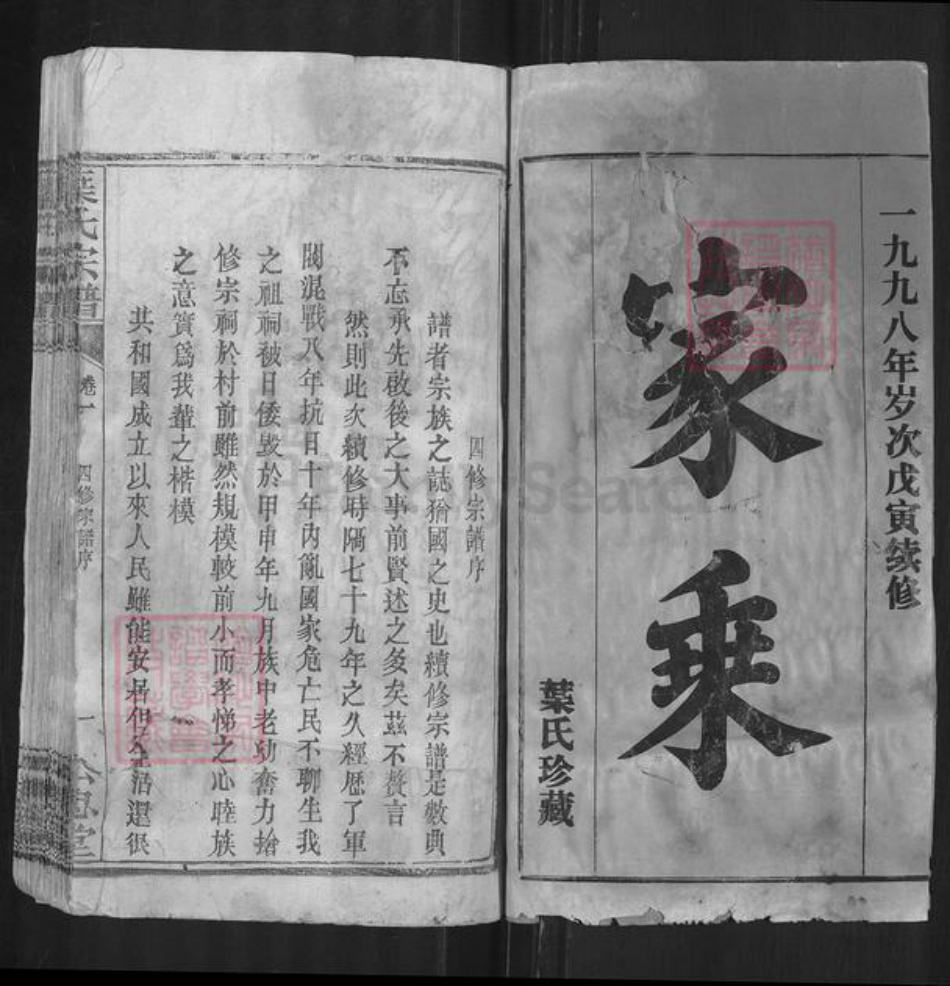 一九九八年岁次戊寅续修
家乘
葉氏珍藏
四修宗譜序
譜者宗族之誌猶國之史也續修宗譜是數典
不忘承先啟後之大事前賢述之多矣茲不贅言
然則此次續修時隔七十九年之久經歷了軍
閥混戰八年抗日十年內亂國家危亡民不聊生我
之祖祠被日倭毀於甲申年九月族中老幼奮力搶
修宗祠於村前雖然規模較前小而孝悌之心睦族
之意實爲我輩之楷模
共和國成立以來人民雖能安居但生活還很
葉氏宗譜
卷一
四修宗譜序
一